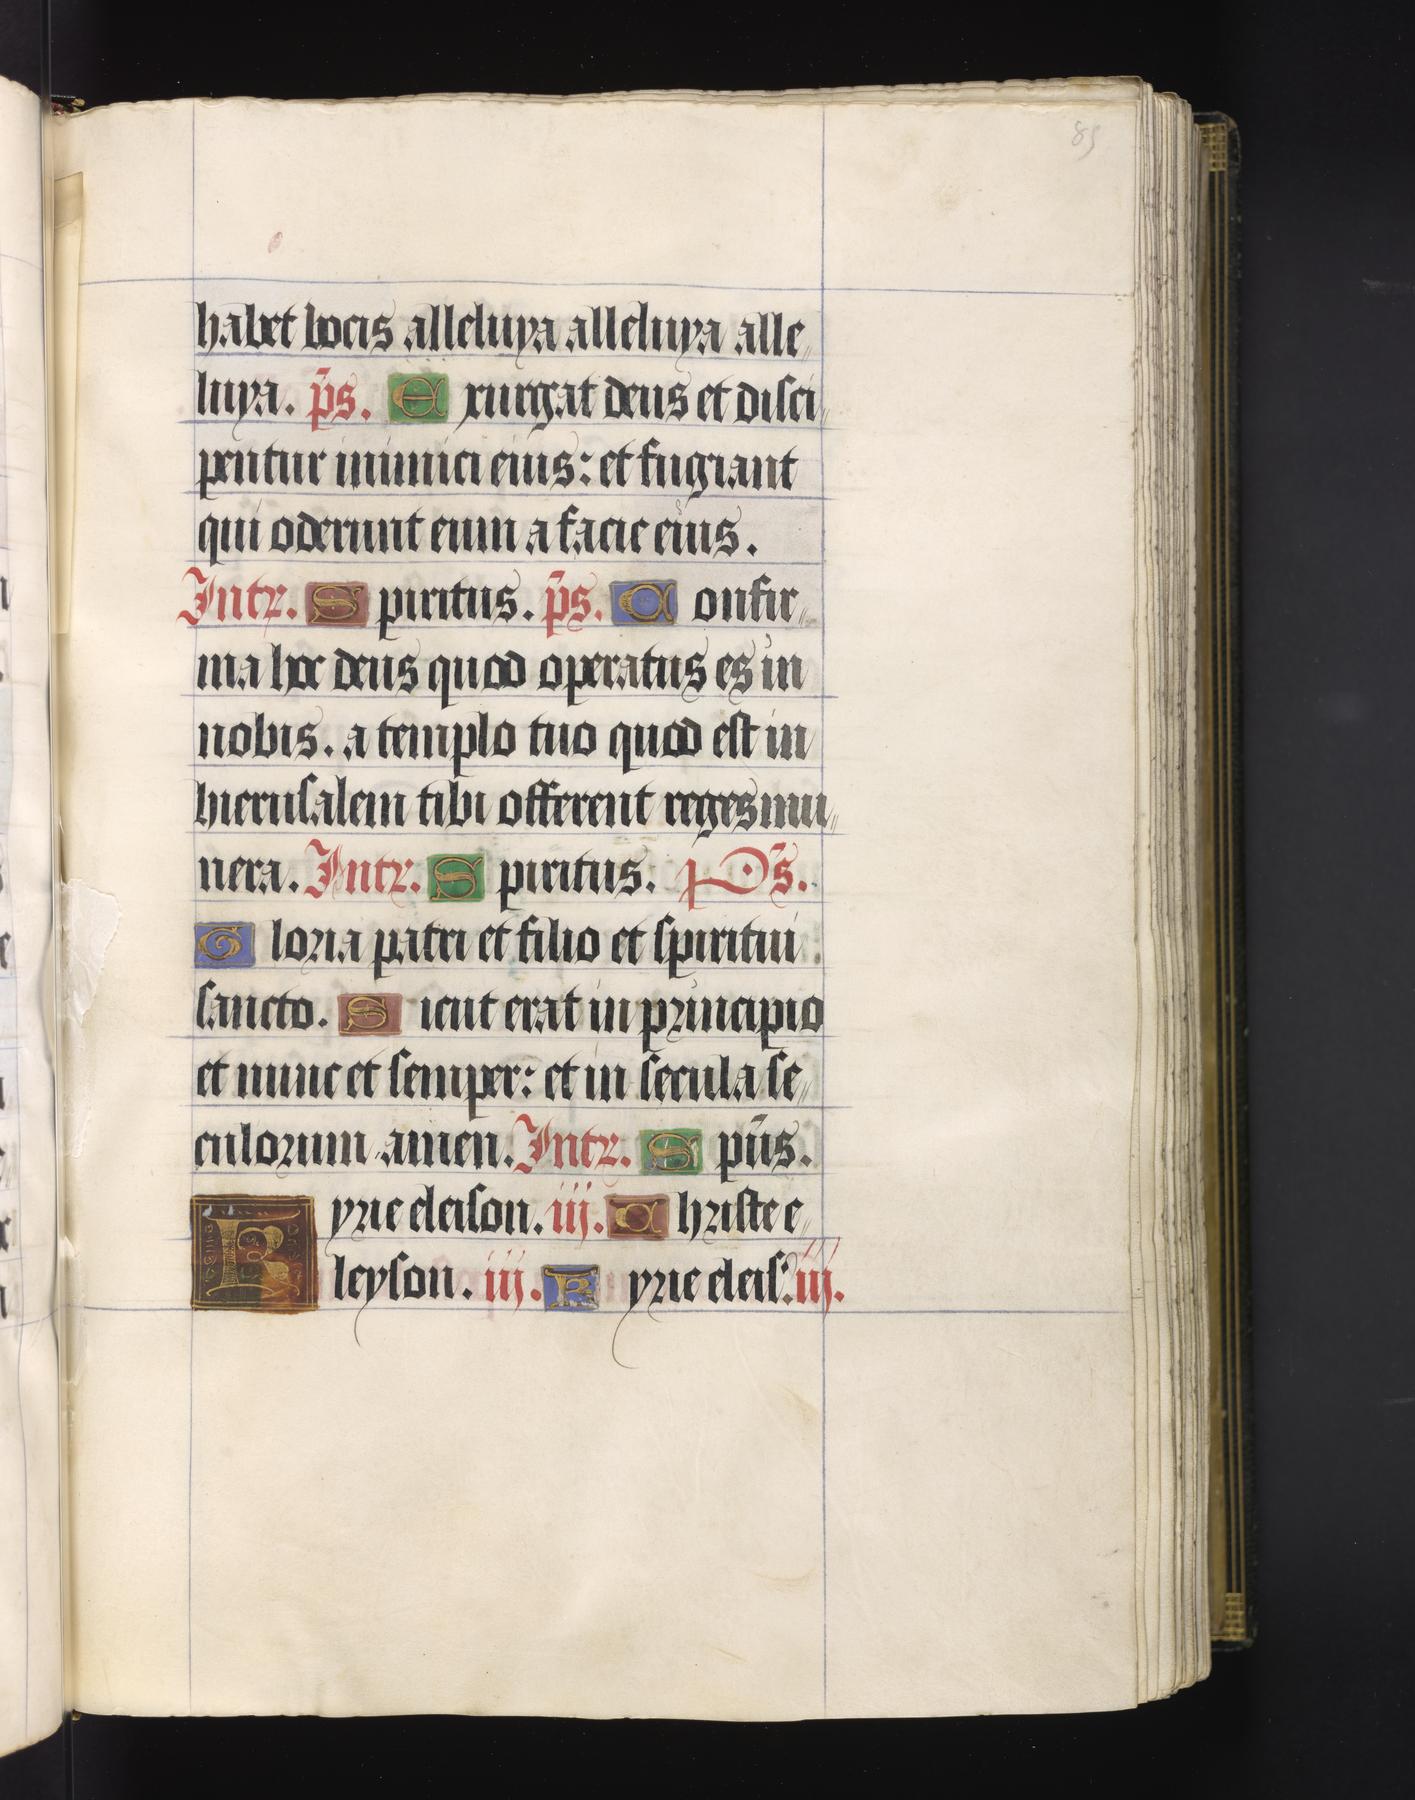 85
habet vocis alleluya alleluya alle„
luya. p̄s. Exurgat deus et dissi„
pentur inimici eius: et fugiant
qui oderunt eum a facie eius.
Intr. Spiritus. p̄s. Confir„
ma hoc deus quod operatus es in
nobis. a templo tuo quod est in
hierusalem tibi offerent reges mu„
nera. Intr. Spiritus. Ps.
Gloria patri et filio et spiritui
sancto. Sicut erat in principio
et nunc et semper: et in secula se„
culorum amen. Intr. Spūs.
Kyrie eleison. iij. Christe e„
leyson. iij. Kyrie eleis. iij.